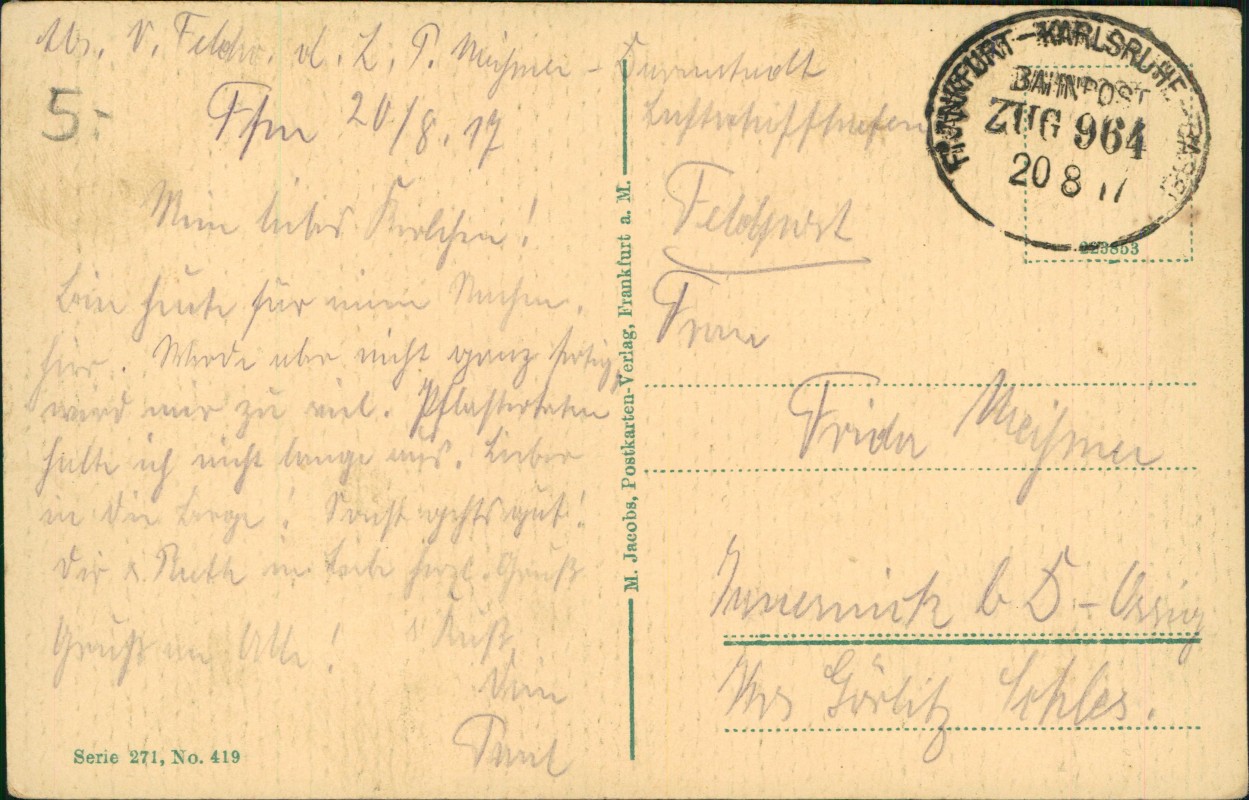 Abs. V. Feldw. d. L. P. Meißner - Darmstadt
Luftschiffhafen
5.-
Ffm 20/8.17
Mein liebes Karlchen!
Bin heute für meine Sachen
hier. Werde aber nicht ganz fertig,
wird mir zu viel. Pflastertreten
halte ich nicht lange aus. Lieber
in die Berge! Sonst gehts gut!
Dir u. Ruth in Liebe herzl. Gruß
Gruß an Alle! Kuß
Dein
Paul
Serie 271, No. 419
M. Jacobs, Postkarten-Verlag, Frankfurt a. M.
FRANKFURT - KARLSRUHE
BAHNPOST
ZUG 964
20 8 17
223853
Feldpost
Frau
Frida Meißner
b D - Ossig
Krs Görlitz Schles.